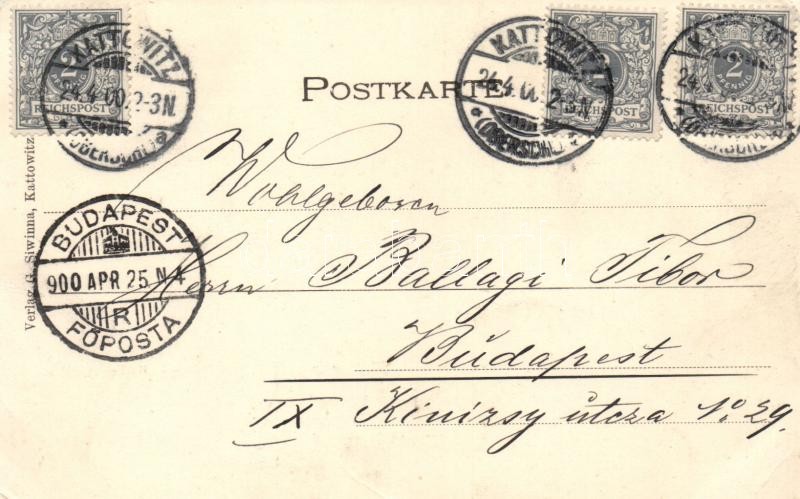 2
PFENNIG
REICHSPOST
KATTOWITZ
24.4.00.2-3N.
* (OBERSCHL.) a
POSTKARTE
KATTOWITZ
24.4.00.2-3N.
* (OBERSCHL.)
REICHSPOST
2
PFENNIG
REICHSPOST
24.4
Verlag G. Siwinna, Kattowitz
Wohlgeboren
Herrn Ballagi Tibor
Budapest
IX Kinizsy útcza No 29.
BUDAPEST
900 APR 25 N 4
R
FŐPOSTA